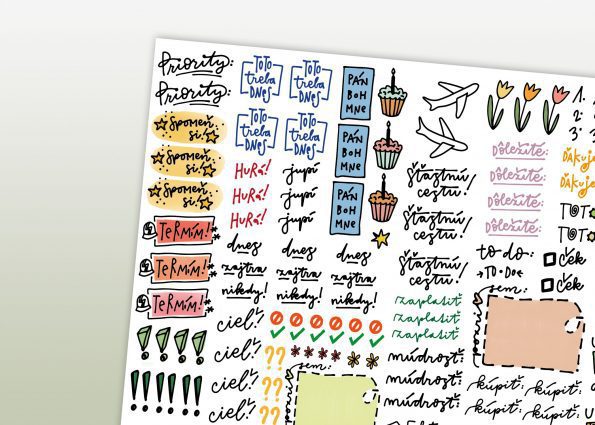 Priority:
Priority:
Spomeň si!
Spomeň si!
Spomeň si!
TERMÍN!
TERMÍN!
TERMÍN!
TOTO treba DNES
TOTO treba DNES
TOTO treba DNES
TOTO treba DNES
HURÁ!
HURÁ!
HURÁ!
jupí
jupí
jupí
dnes
dnes
dnes
zajtra
zajtra
zajtra
nikdy!
nikdy!
nikdy!
cieľ?
cieľ?
cieľ?
cieľ?
??
??
??
PÁN BOH MNE
PÁN BOH MNE
PÁN BOH MNE
sem:
Šťastnú cestu!
Šťastnú cestu!
Šťastnú cestu!
zaplatiť
zaplatiť
zaplatiť
múdrosť:
múdrosť:
múdrosť:
Dôležité:
Dôležité:
Dôležité:
Dôležité:
to-do:
→TO-DO←
sem:
kúpiť:
kúpiť:
kúpiť:
kúpiť:
1.
2.
3.